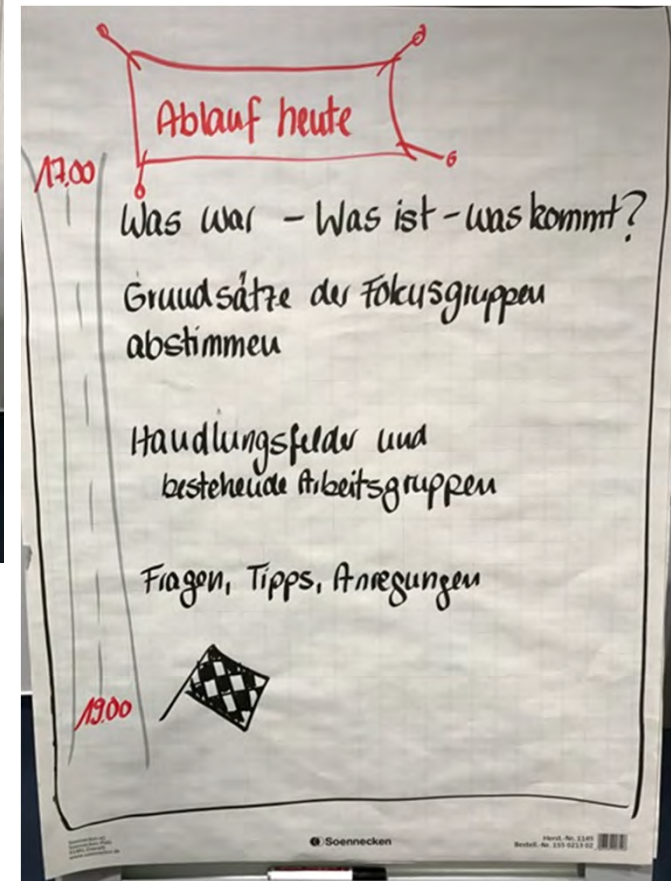 Ablauf heute
17.00
Was war - Was ist - was kommt?
Grundsätze der Fokusgruppen
abstimmen
Handlungsfelder und
bestehende Arbeitsgruppen
Fragen, Tipps, Anregungen
19.00
Soennecken
Herst.-Nr. 1145
Bestell.-Nr. 155 0213 02